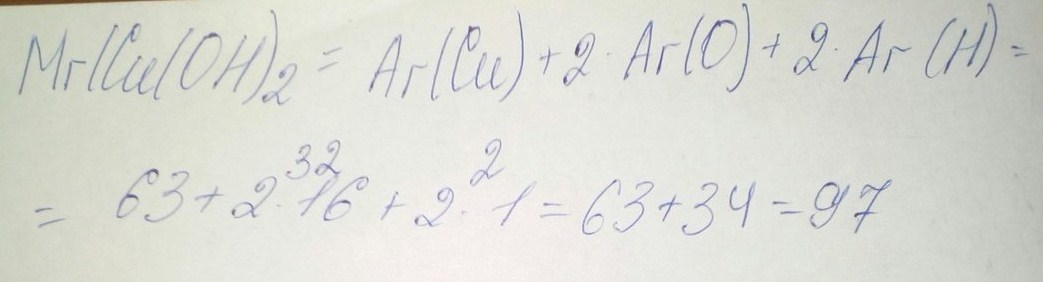 Mr(Cu(OH)2 = Ar(Cu) + 2 · Ar(O) + 2 · Ar (H) =
32 2
= 63 + 2 · 16 + 2 · 1 = 63 + 34 = 97